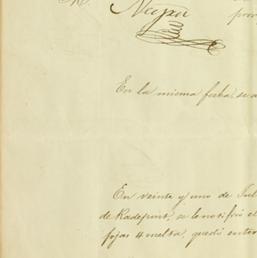 En la misma fecha, se a
En veinte y uno de Jul
de Radepont, se le notificó el
fojas 4 vuelta, quedó enter